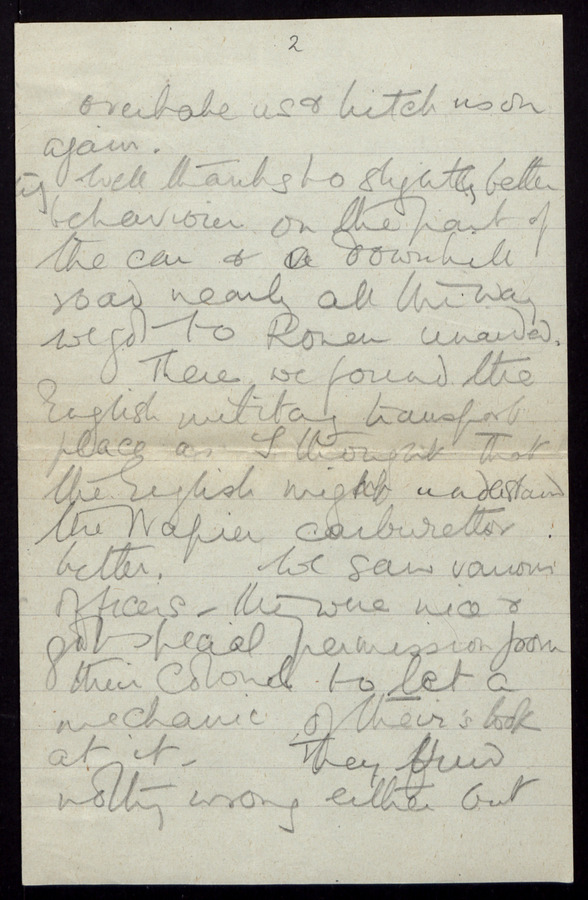 2
overtake us & hitch us on
again.
Well thanks to slightly better
behaviour on the part of
the car & a downhill
road nearly all the way
we got to Rouen unaided.
There we found the
English military transport
place as I thought that
the English might understand
the Napier carburettor
better. We saw various
officers - they were nice &
got special permission from
their Colonel to let a
mechanic of their's look
at it - They find
nothing wrong either but